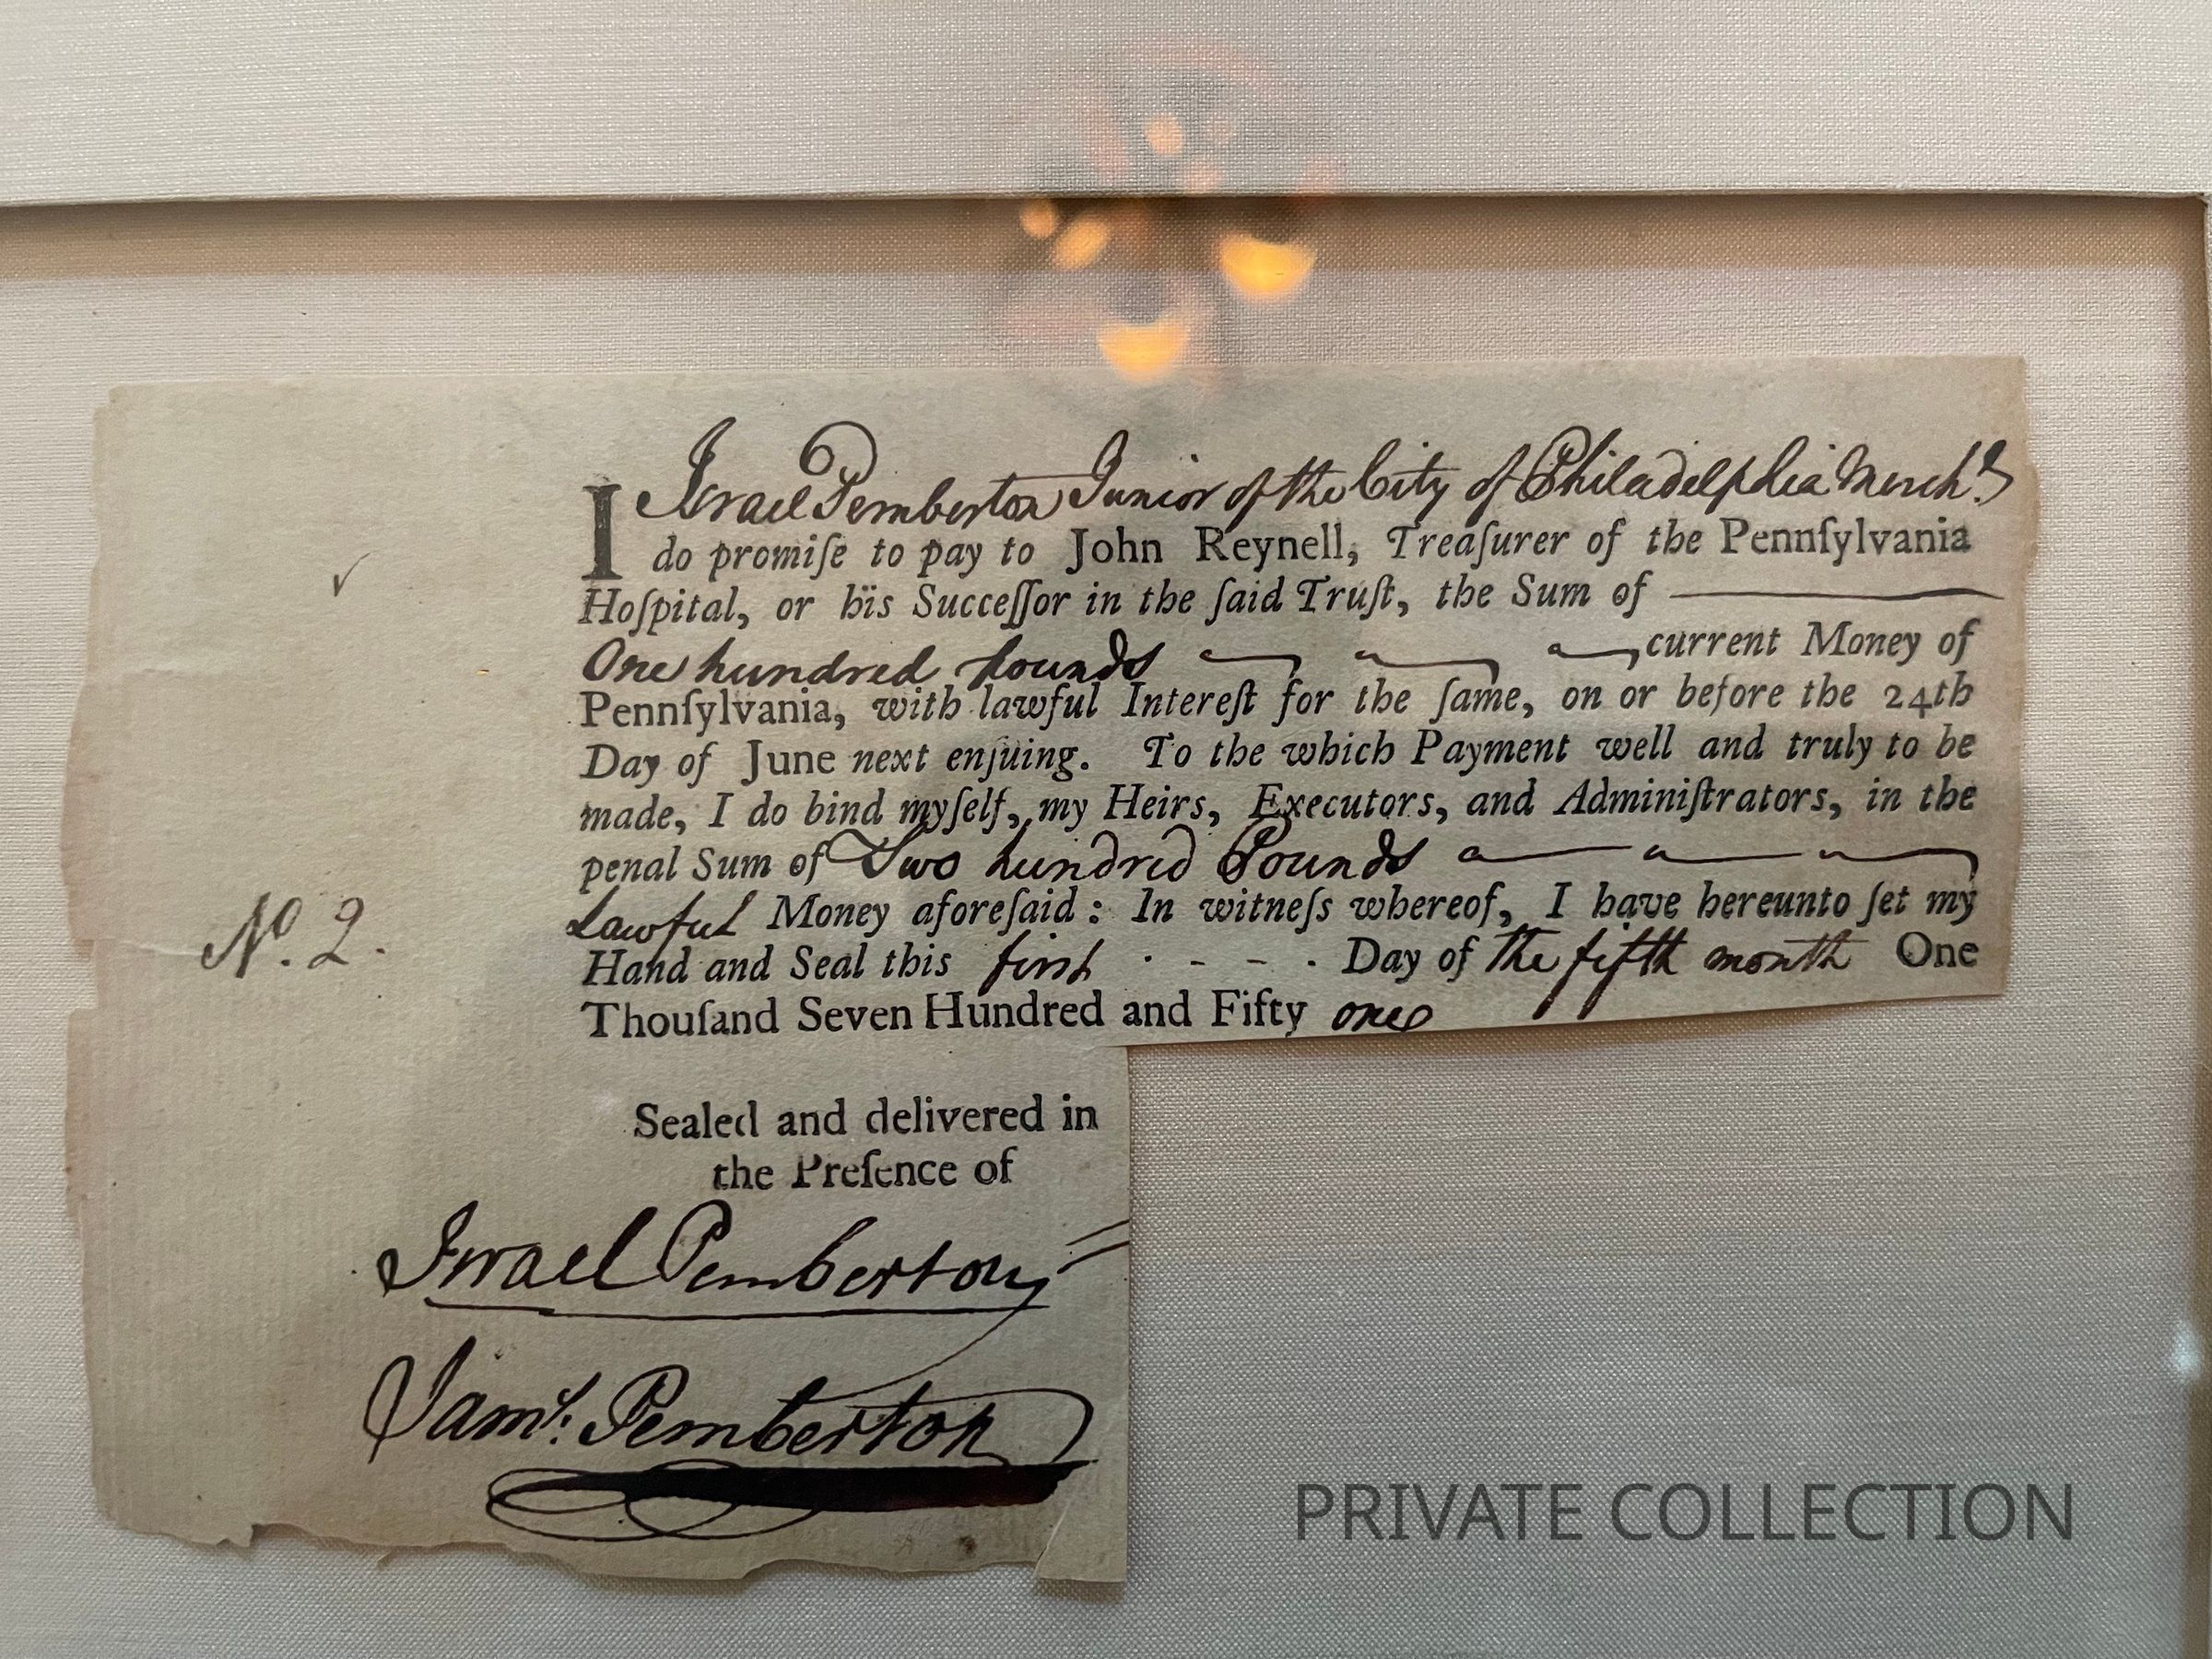 I Israel Pemberton Junior of the City of Philadelphia Merch.t
do promiſe to pay to John Reynell, Treaſurer of the Pennſylvania
Hoſpital, or his Succeſſor in the ſaid Truſt, the Sum of
One hundred pounds current Money of
Pennſylvania, with lawful Intereſt for the ſame, on or before the 24th
Day of June next enſuing. To the which Payment well and truly to be
made, I do bind myſelf, my Heirs, Executors, and Adminiſtrators, in the
penal Sum of Two hundred Pounds
Lawful Money aforeſaid: In witneſs whereof, I have hereunto ſet my
No. 2.
Hand and Seal this first - - - Day of the fifth month One
Thouſand Seven Hundred and Fifty one
Sealed and delivered in
the Preſence of
Israel Pemberton
Jam.s Pemberton
PRIVATE COLLECTION